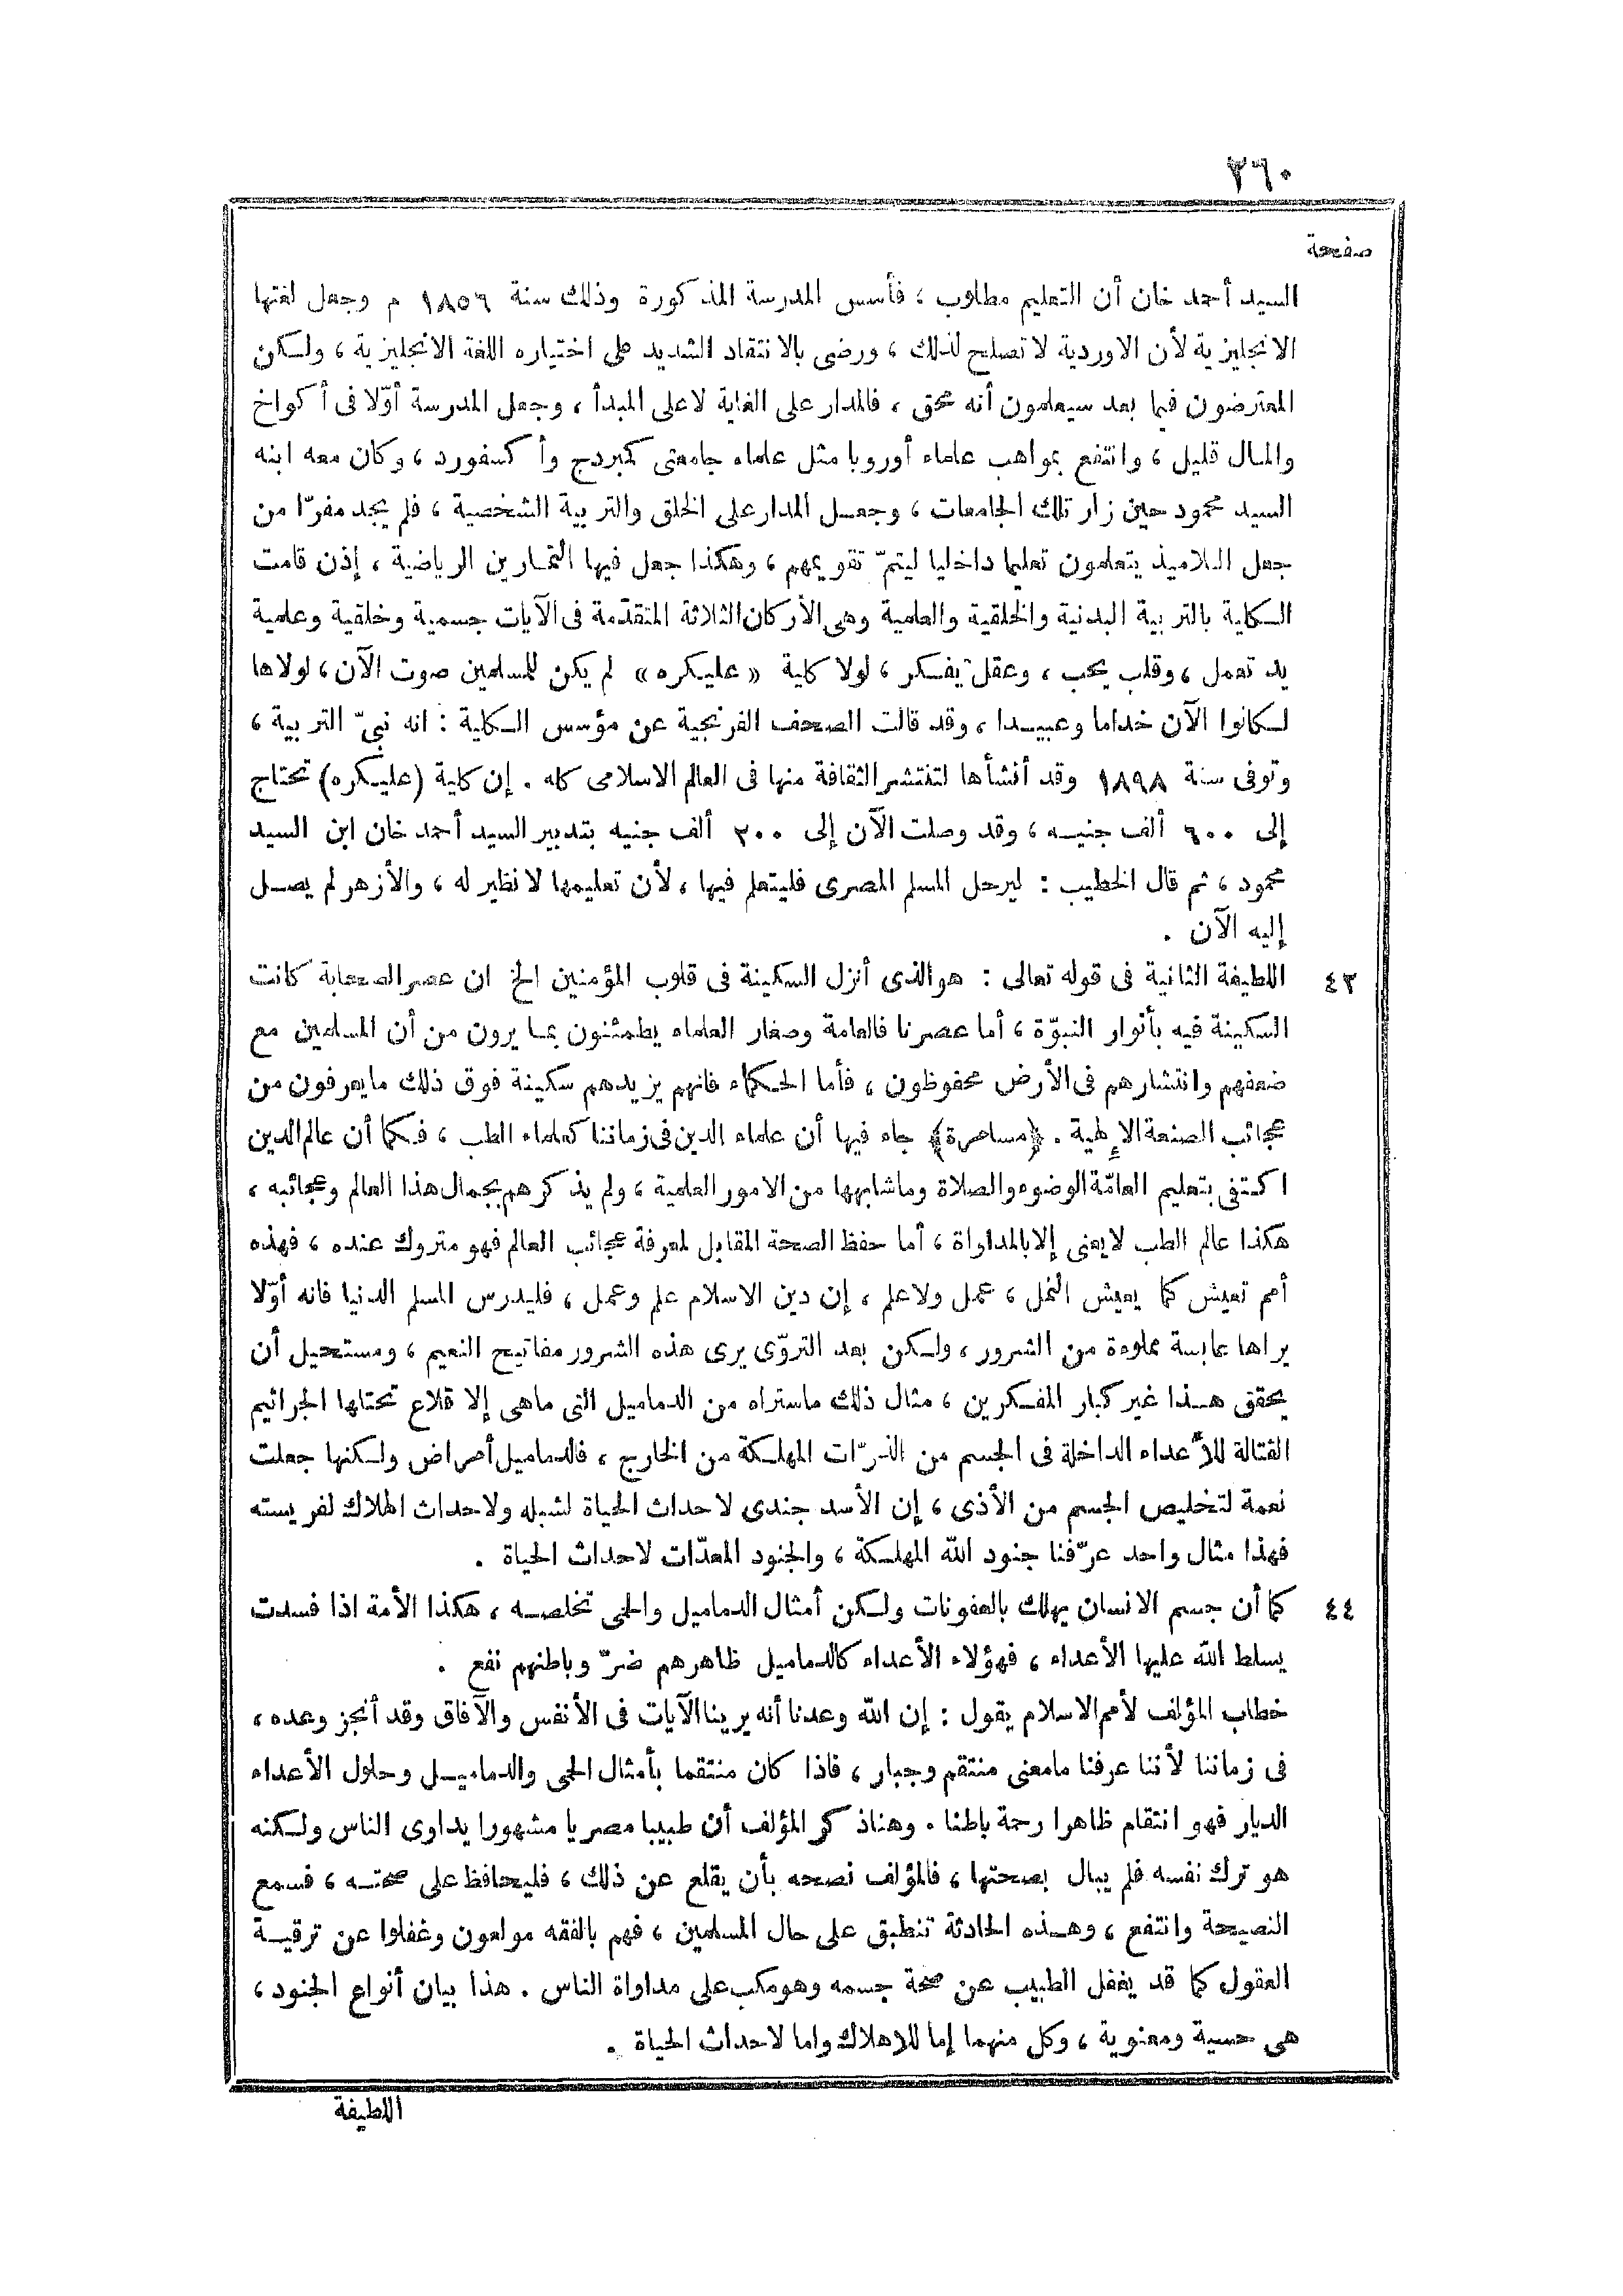 ٣٦٠
صفحة
السيد أحمد خان أن التعليم مطلوب ، فأسس المدرسة المذكورة وذلك سنة ١٨٥٦ م وجعل لغتها
الانجليزية لأن الاوردية لا تصلح لذلك ، ورضى بالانتقاد الشديد على اختياره اللغة الانجليزية ، ولكن
المعترضون فيما بعد سيعلمون أنه محق ، فالمدار على الغاية لا على المبدأ ، وجعل المدرسة أوّلا فى أكواخ
والمال قليل ، وانتفع بمواهب علماء أوروبا مثل علماء جامعتى كمبردج وأكسفورد ، وكان معه ابنه
السيد محمود حين زار تلك الجامعات ، وجعل المدار على الخلق والتربية الشخصية ، فلم يجد مفرّا من
جعل التلاميذ يتعلمون تعليما داخليا ليتمّ تقويمهم ، وهكذا جعل فيها التمارين الرياضية ، إذن قامت
الكلية بالتربية البدنية والخلقية والعلمية وهى الأركان الثلاثة المتقدّمة فى الآيات جسمية وخلقية وعلمية
يد تعمل ، وقلب يحب ، وعقل يفكر ، لولا كلية «عليكره» لم يكن للمسلمين صوت الآن ، لولاها
لكانوا الآن خداما وعبيدا ، وقد قالت الصحف الفرنجية عن مؤسس الكلية : انه نبىّ التربية ،
وتوفى سنة ١٨٩٨ وقد أنشأها لتنتشر الثقافة منها فى العالم الاسلامى كله . إن كلية (عليكره) تحتاج
إلى ٦٠٠ ألف جنيه ، وقد وصلت الآن إلى ٣٠٠ ألف جنيه بتدبير السيد أحمد خان ابن السيد
محمود ، ثم قال الخطيب : ليرحل المسلم المصرى فليتعلم فيها ، لأن تعليمها لا نظير له ، والأزهر لم يصل
إليه الآن .
٤٣ اللطيفة الثانية فى قوله تعالى : هو الذى أنزل السكينة فى قلوب المؤمنين الخ ان عصر الصحابة كانت
السكينة فيه بأنوار النبوّة ، أما عصرنا فالعامة وصغار العلماء يطمئنون بما يرون من أن المسلمين مع
ضعفهم وانتشارهم فى الأرض محفوظون ، فأما الحكماء فانهم يزيدهم سكينة فوق ذلك ما يعرفون من
عجائب الصنعة الإلهية . ﴿مسامرة﴾ جاء فيها أن علماء الدين فى زماننا كعلماء الطب ، فكما أن عالم الدين
اكتفى بتعليم العامّة الوضوء والصلاة وما شابهها من الامور العلمية ، ولم يذكرهم بجمال هذا العالم وعجائبه ،
هكذا عالم الطب لا يعنى إلا بالمداواة ، أما حفظ الصحة المقابل لمعرفة عجائب العالم فهو متروك عنده ، فهذه
أمم تعيش كما يعيش النمل ، عمل ولا علم ، إن دين الاسلام علم وعمل ، فليدرس المسلم الدنيا فانه أوّلا
يراها عابسة مملوءة من الشرور ، ولكن بعد التروّى يرى هذه الشرور مفاتيح النعيم ، ومستحيل أن
يحقق هذا غير كبار المفكرين ، مثال ذلك ما ستراه من الدماميل التى ماهى إلا قلاع تحتلها الجراثيم
القتالة للأعداء الداخلة فى الجسم من الذرّات المهلكة من الخارج ، فالدماميل أمراض ولكنها جعلت
نعمة لتخليص الجسم من الأذى ، إن الأسد جندى لاحداث الحياة لشبله ولاحداث الهلاك لفريسته
فهذا مثال واحد عرّفنا جنود الله المهلكة ، والجنود المعدّات لاحداث الحياة .
٤٤ كما أن جسم الانسان يهلك بالعفونات ولكن أمثال الدماميل والحمى تخلصه ، هكذا الأمة اذا فسدت
يسلط الله عليها الأعداء ، فهؤلاء الأعداء كالدماميل ظاهرهم ضرّ وباطنهم نفع .
خطاب المؤلف لأمم الاسلام يقول : إن الله وعدنا أنه يرينا الآيات فى الأنفس والآفاق وقد أنجز وعده ،
فى زماننا لأننا عرفنا مامعنى منتقم وجبار ، فاذا كان منتقما بأمثال الحمى والدماميل وحلول الأعداء
الديار فهو انتقام ظاهرا رحمة باطنا . وهنا ذكر المؤلف أن طبيبا مصريا مشهورا يداوى الناس ولكنه
هو ترك نفسه فلم يبال بصحتها ، فالمؤلف نصحه بأن يقلع عن ذلك ، فليحافظ على صحته ، فسمع
النصيحة وانتفع ، وهذه الحادثة تنطبق على حال المسلمين ، فهم بالفقه مولعون وغفلوا عن ترقية
العقول كما قد يغفل الطبيب عن صحة جسمه وهو مكب على مداواة الناس . هذا بيان أنواع الجنود ،
هى حسية ومعنوية ، وكل منهما إما للاهلاك واما لاحداث الحياة .
اللطيفة